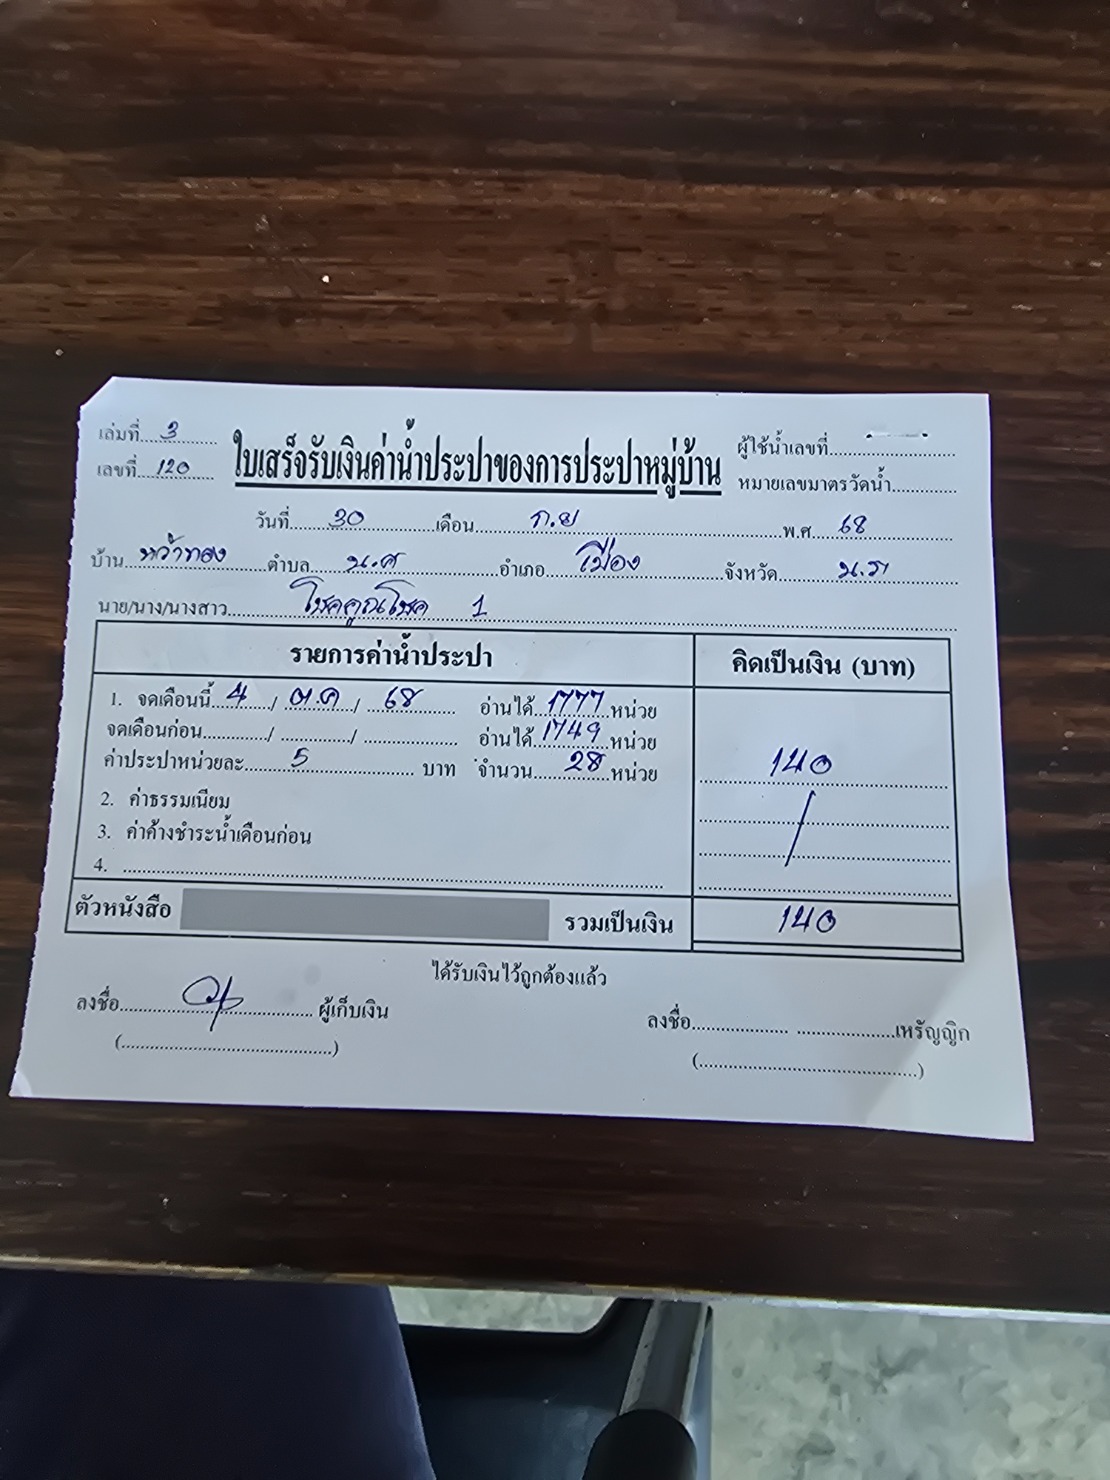 เล่มที่ 3
เลขที่ 120
ใบเสร็จรับเงินค่าน้ำประปาของการประปาหมู่บ้าน
ผู้ใช้น้ำเลขที่
หมายเลขมาตรวัดน้ำ
วันที่ 30 เดือน ก.ย พ.ศ 68
บ้าน หว้าทอง ตำบล น.ศ อำเภอ เมือง จังหวัด น.ร
นาย/นาง/นางสาว โชคคูณโชค 1
รายการค่าน้ำประปา คิดเป็นเงิน (บาท)
1. จดเดือนนี้ 4 / ต.ค / 68 อ่านได้ 1777 หน่วย
จดเดือนก่อน / / อ่านได้ 1749 หน่วย
ค่าประปาหน่วยละ 5 บาท จำนวน 28 หน่วย 140
2. ค่าธรรมเนียม
3. ค่าค้างชำระน้ำเดือนก่อน
4.
ตัวหนังสือ รวมเป็นเงิน 140
ได้รับเงินไว้ถูกต้องแล้ว
ลงชื่อ ผู้เก็บเงิน ลงชื่อ เหรัญญิก